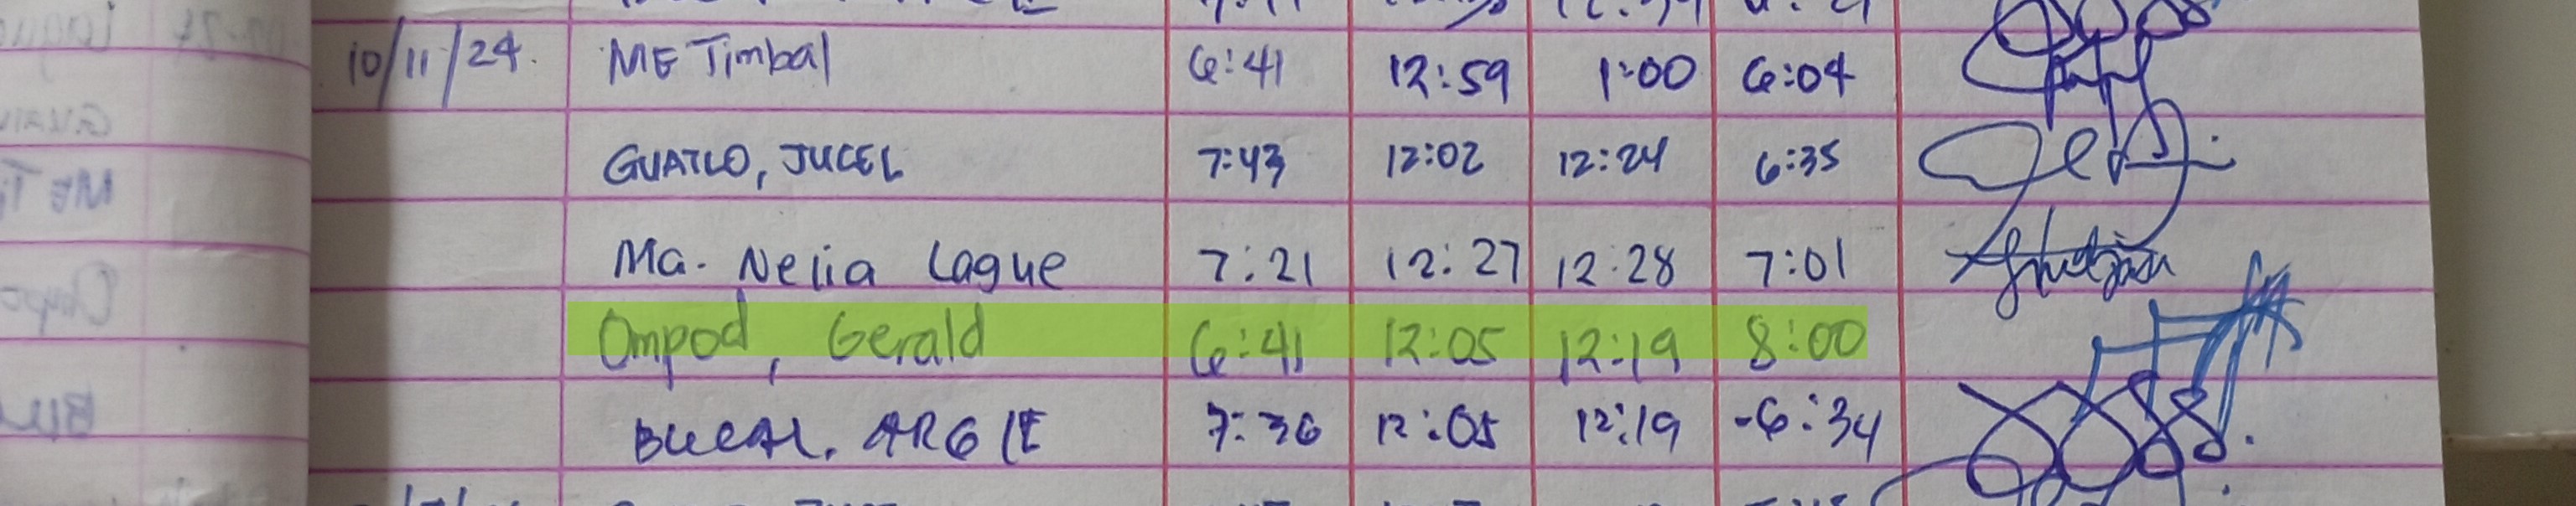 10/11/24. ME Timbal 6:41 12:59 1:00 6:04
GUATLO, JUCEL 7:43 12:02 12:24 6:35
Ma. Nelia Lague 7:21 12:27 12:28 7:01
Ompod, Gerald 6:41 12:05 12:19 8:00
BUCAL. ARGIE 7:36 12:05 12:19 -6:34